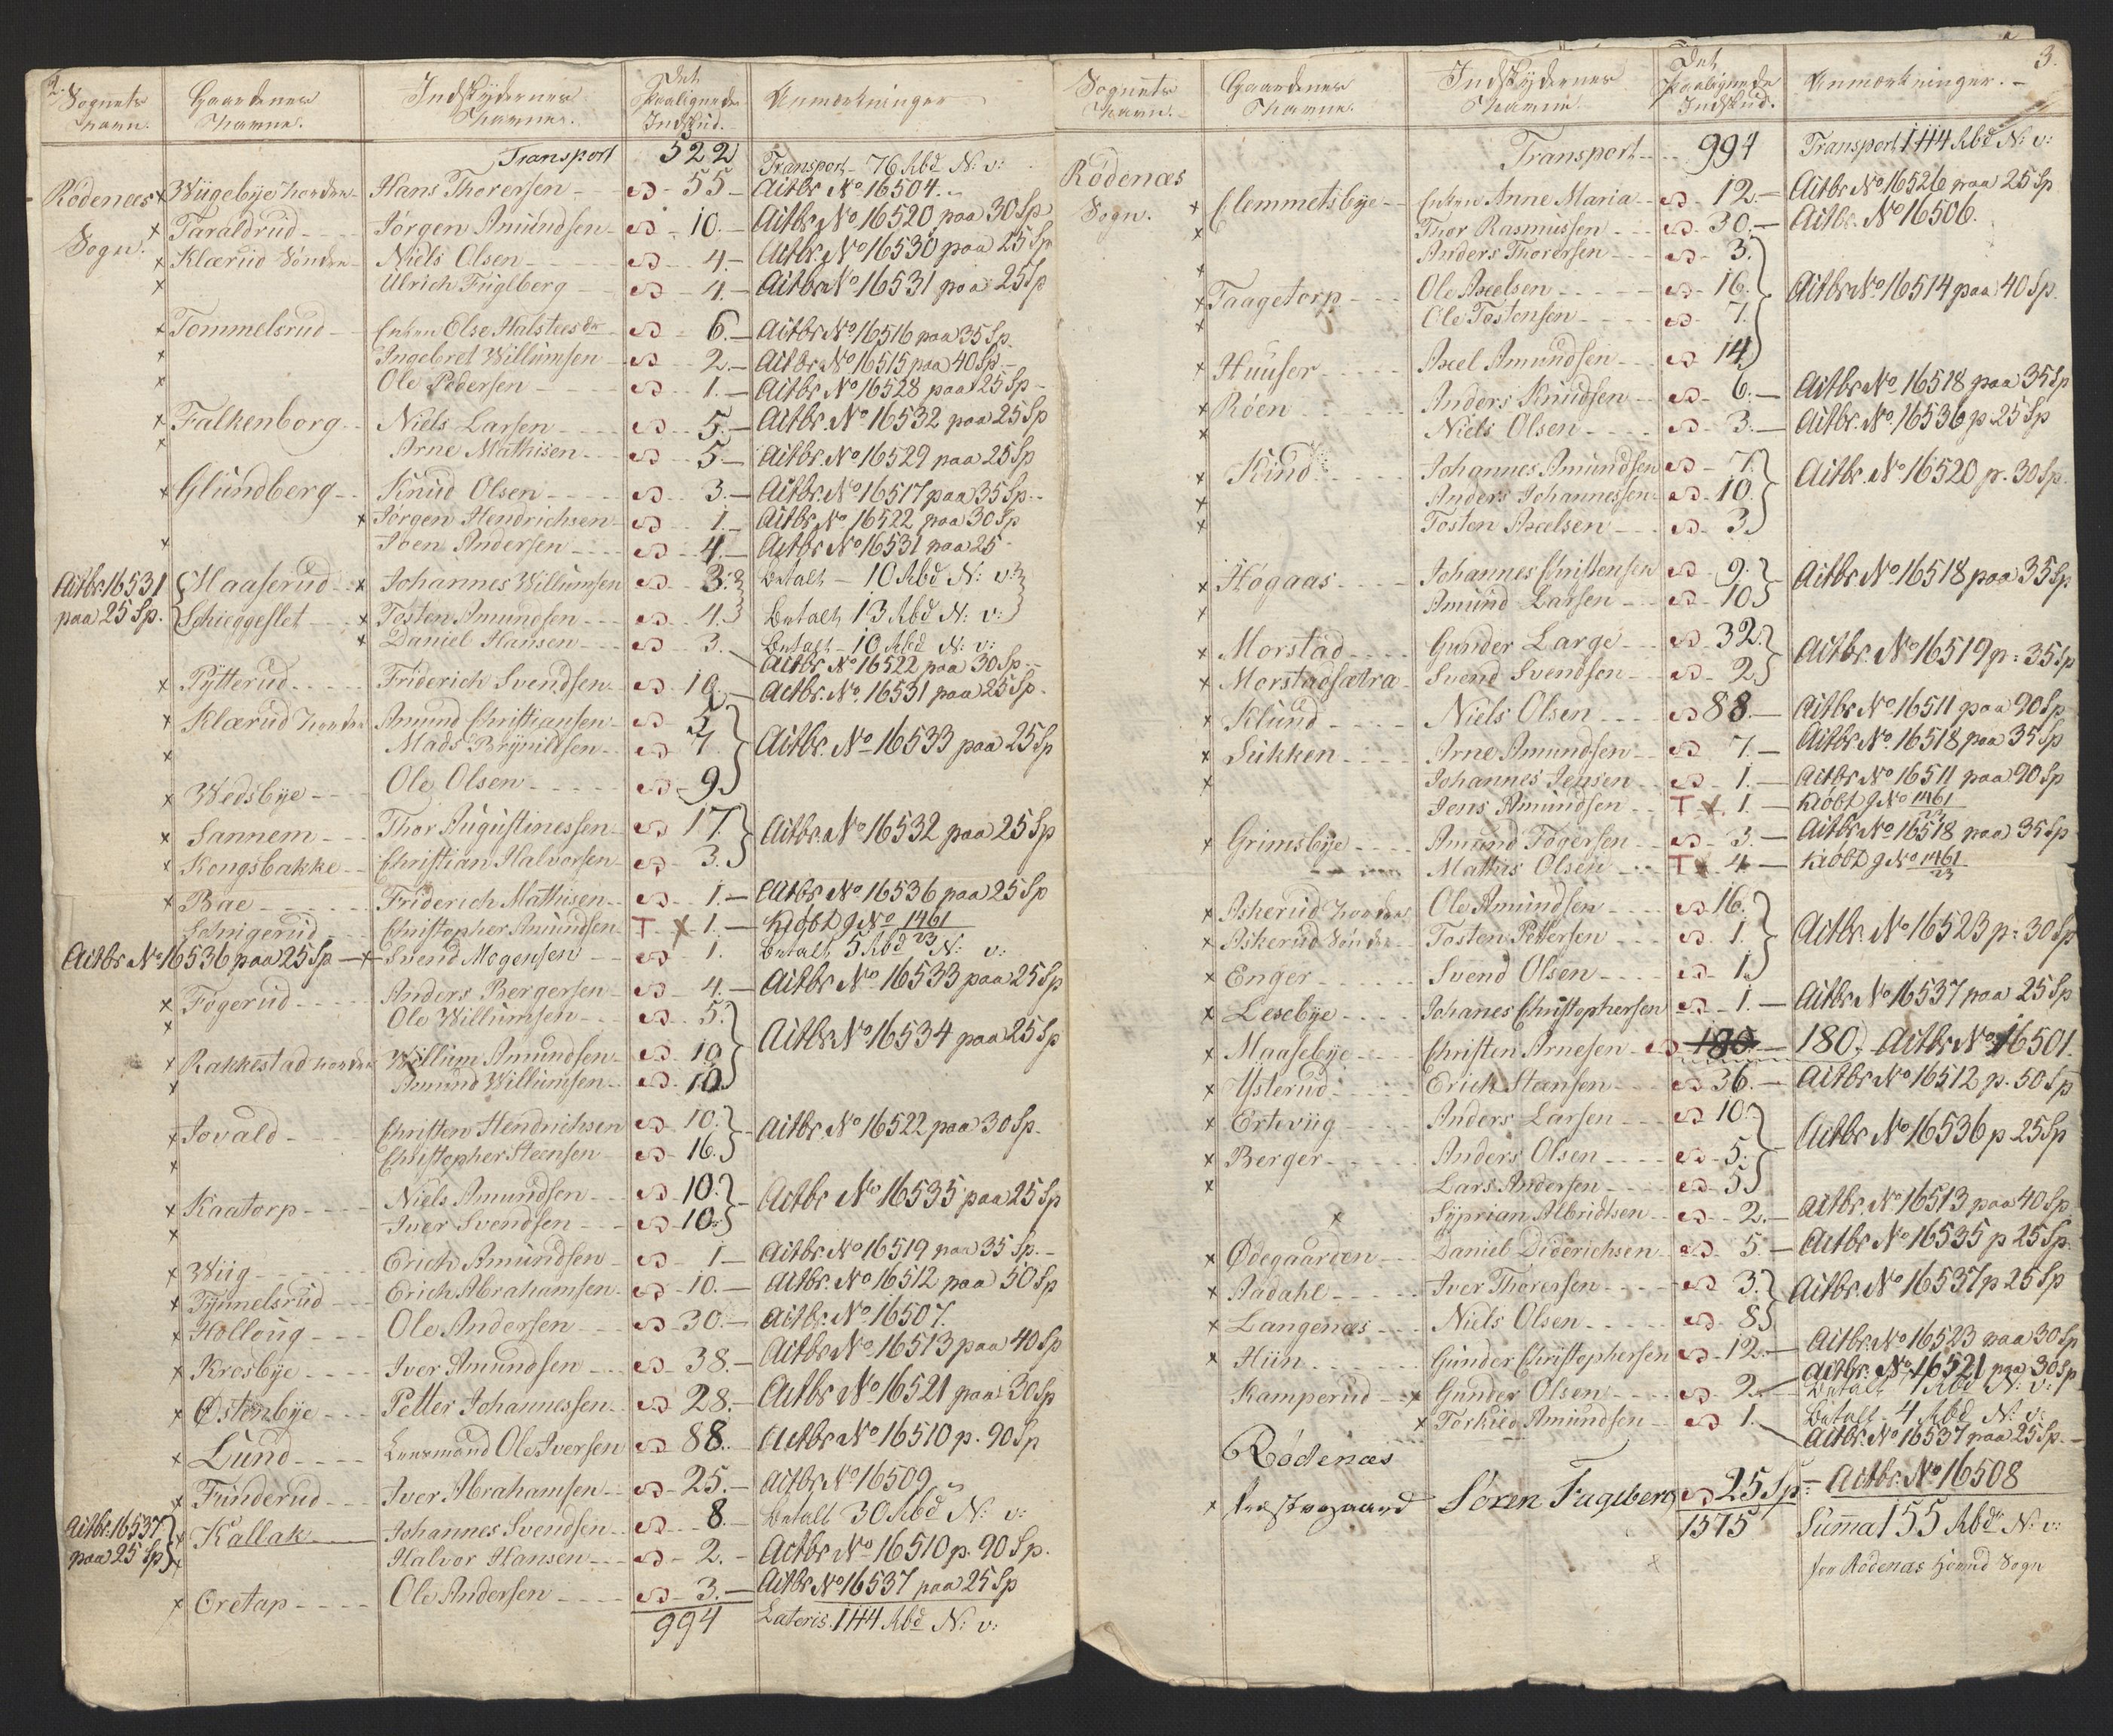 2.
Sognets Navn. Gaardenes Navne. Indskydernes Navne. Det Paalignede Indskud. Anmærkninger
Transport 522 Transport - 76 Rbd N: v:
Rödenæs Sogn. x Wügebÿe Norden Hans Thoresen - 55 - Actbr. No 16504.
x Taraldrud Jörgen Amundsen - 10. - Actbr. No 16520 paa 30 Sp
x Klærud Sönden Niels Olsen - 4. - Actbr. No 16530 paa 25 Sp
x Ulrich Füglberg - 4. - Actbr. No 16531 paa 25 Sp
x Tommelsrud Enken Else Halstensdr - 6. - Actbr. No 16516 paa 35 Sp.
x Ingebret Willumsen - 2. - Actbr. No 16515 paa 40 Sp. -
x Ole Pedersen - 1. - Actbr. No 16528 paa 25 Sp -
x Falkenborg Niels Larsen - 5. - Actbr. No 16532 paa 25 Sp
x Arne Mathisen - 5 - Actbr. No 16529 paa 25 Sp
x Glundberg Knud Olsen - 3. - Actbr. No 16517 paa 35 Sp. -
x Jörgen Hendrichsen - 1. - Actbr. No 16522 paa 30 Sp
x Joen Andersen - 4. - Actbr. No 16531 paa 25 -
Actbr. 16531 paa 25 Sp. { Maaserud x Johannes Willumsen - 3. } betalt - 10 Rbd N: v: }
Schiedgeslet x Tosten Amundsen - 4. } betalt 13 Rbd N: v: }
x Daniel Hansen - 3. betalt - 10 Rbd N: v:
Actbr. No 16522 paa 30 Sp. -
x Pÿtterud Friderich Svendsen - 10. - Actbr. No 16531 paa 25 Sp.
x Klærud Norden Amund Christiansen -
x Mads Brÿnildsen - 7. } Actbr. No 16533 paa 25 Sp
x Wedsbÿe Ole Olsen - 9 }
x Sannem Thor Augustinessen - 17. } Actbr. No 16532 paa 25 Sp
x Kongsbakke Christian Halvorsen - 3. }
x Bae Friderich Mathisen - 1. - Actbr. No 16536 paa 25 Sp
Schigerud Christopher Amundsen T x 1. - Kiöbt No 1461/23
Actbr. No 16536 paa 25 Sp - x Svend Mogensen - 1. betalt 5 Rbd N: v:
x Fögerud Anders Bergersen - 4. - Actbr. No 16533 paa 25 Sp
x Ole Willumsen - 5. }
x Rakkestad Norden Willum Amundsen - 10 } Actbr. No 16534 paa 25 Sp
x Amund Willumsen - 10 }
x Jovald Christen Hendrichsen - 10. } Actbr. No 16522 paa 30 Sp.
x Christopher Steensen - 16. }
x Kaatorp Niels Amundsen - 10. } Actbr. No 16535 paa 25 Sp
x Iver Svendsen - 10. }
x Wiig Erich Amundsen - 1 - Actbr. No 16519 paa 35 Sp. -
x Tÿmmelsrud Erich Abrahamsen - 10. - Actbr. No 16512 paa 50 Sp
x Holloug Ole Andersen - 30. - Actbr. No 16507.
x Krosbÿe Iver Amundsen - 38. - Actbr. No 16513 paa 40 Sp
x Østenbÿe Petter Johannessen - 28. - Actbr. No 16521 paa 30 Sp
x Lund Lensmand Ole Iversen - 88. - Actbr. No 16510 p. 90 Sp
x Funderud Iver Abrahamsen - 25. - Actbr. No 16509
Actbr. 16537 paa 25 Sp } x Kallak Johannes Svendsen - 8. betalt 30 Rbd N: v:
x Halvor Hansen - 2. - Actbr. No 16510 p. 90 Sp.
x Oretap Ole Andersen - 3. - Actbr. No 16537 paa 25 Sp
994 Lateris 144 Rbd N: v:
3.
Sognets Navn. Gaardenes Navne. Indskydernes Navne. Det Paalignede Indskud. Anmærkninger. -
Transport 994 Transport 144 Rbd N: v:
Rödenæs Sogn. x Clemmetsbÿe Enken Anne Maria - 12. - Actbr. No 16526 paa 25 Sp
x Thor Rasmussen - 30. - Actbr. No 16506.
x Anders Thorersen - 3. }
x Taagetorp Ole Axelsen - 16. } Actbr. No 16514 paa 40 Sp.
x Ole Tostensen - 7. }
x Huuser Axel Amundsen - 14 }
x Röen Anders Knudsen - 6. - Actbr. No 16518 paa 35 Sp
x Niels Olsen - 3. - Actbr. No 16536 p. 25 Sp
x Krud Johannes Amundsen - 7. } Actbr. No 16520 p. 30 Sp.
x Anders Johannessen - 10. }
x Tosten Axelsen - 3 }
x Högaas Johannes Christensen - 9. } Actbr. No 16518 paa 35 Sp.
x Amund Larsen - 10 }
x Morstad Gunder Large - 32. } Actbr. No 16519 p: 35 Sp
x Morstadsætra Svend Svendsen - 2 }
x Klund Niels Olsen - 88. - Actbr. No 16511 paa 90 Sp
x Sukken Arne Amundsen - 7. - Actbr. No 16518 paa 35 Sp
x Johannes Jensen - 1. - Actbr. No 16511 paa 90 Sp
Jens Amundsen T x 1. - Kiöbt No 1461/23
x Grimsbÿe Amund Fögersen - 3. - Actbr. No 16518 paa 35 Sp
Mathis Olsen T x 4 - Kiöbt No 1461/23
x Askerud Norden Ole Amundsen - 16. }
x Askerud Sönden Tosten Pettersen - 1. } Actbr. No 16523 p: 30 Sp
x Enger Svend Olsen - 1 }
x Lexebÿe Johanes Christophersen - 1. - Actbr. No 16537 paa 25 Sp
x Maasebÿe Christen Arnesen - 180. - 180. Actbr. No 16501.
x Ÿsterud Erich Steensen - 36. - Actbr. No 16512 p. 50 Sp
x Ertwiig Anders Larsen - 10. }
x Berger Anders Olsen - 5. } Actbr. No 16536 p 25 Sp
x Lars Andersen - 5 }
x Sÿprian Albridtsen - 2. - Actbr. No 16513 paa 40 Sp
x Ødegaarden Daniel Diderichsen - 5. - Actbr. No 16535 p 25 Sp.
x Aadahl Iver Thoresen - 3. } Actbr. No 16537 p 25 Sp
x Langenæs Niels Olsen - 8 }
x Hiin Gunder Christophersen - 12. - Actbr. No 16523 paa 30 Sp
Actbr. No 16521 paa 30 Sp
Kamperud x Gunder Olsen - 2. betalt 7 Rbd N: v:
x Torkild Amundsen - 1. betalt - 4 Rbd N: v:
Actbr. No 16537 paa 25 Sp. -
Rödenæs
x Præstegaard Sören Fuglberg 25 Sp: = Actbr. No 16508
1575 Suma 155 Rbd N: v:
for Rödenæs Hoved Sogn